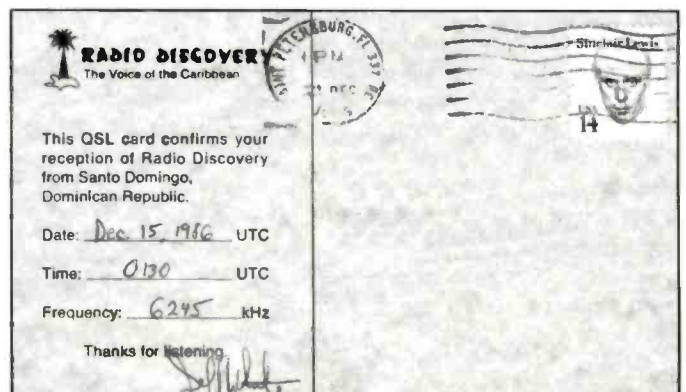 RADIO DISCOVERY
The Voice of the Caribbean
This QSL card confirms your
reception of Radio Discovery
from Santo Domingo,
Dominican Republic.
Date: Dec. 15, 1986 UTC
Time: 0130 UTC
Frequency: 6245 kHz
Thanks for listening
SAINT PETERSBURG, FL 337
PM
21 DEC
Sinclair Lewis
USA
14